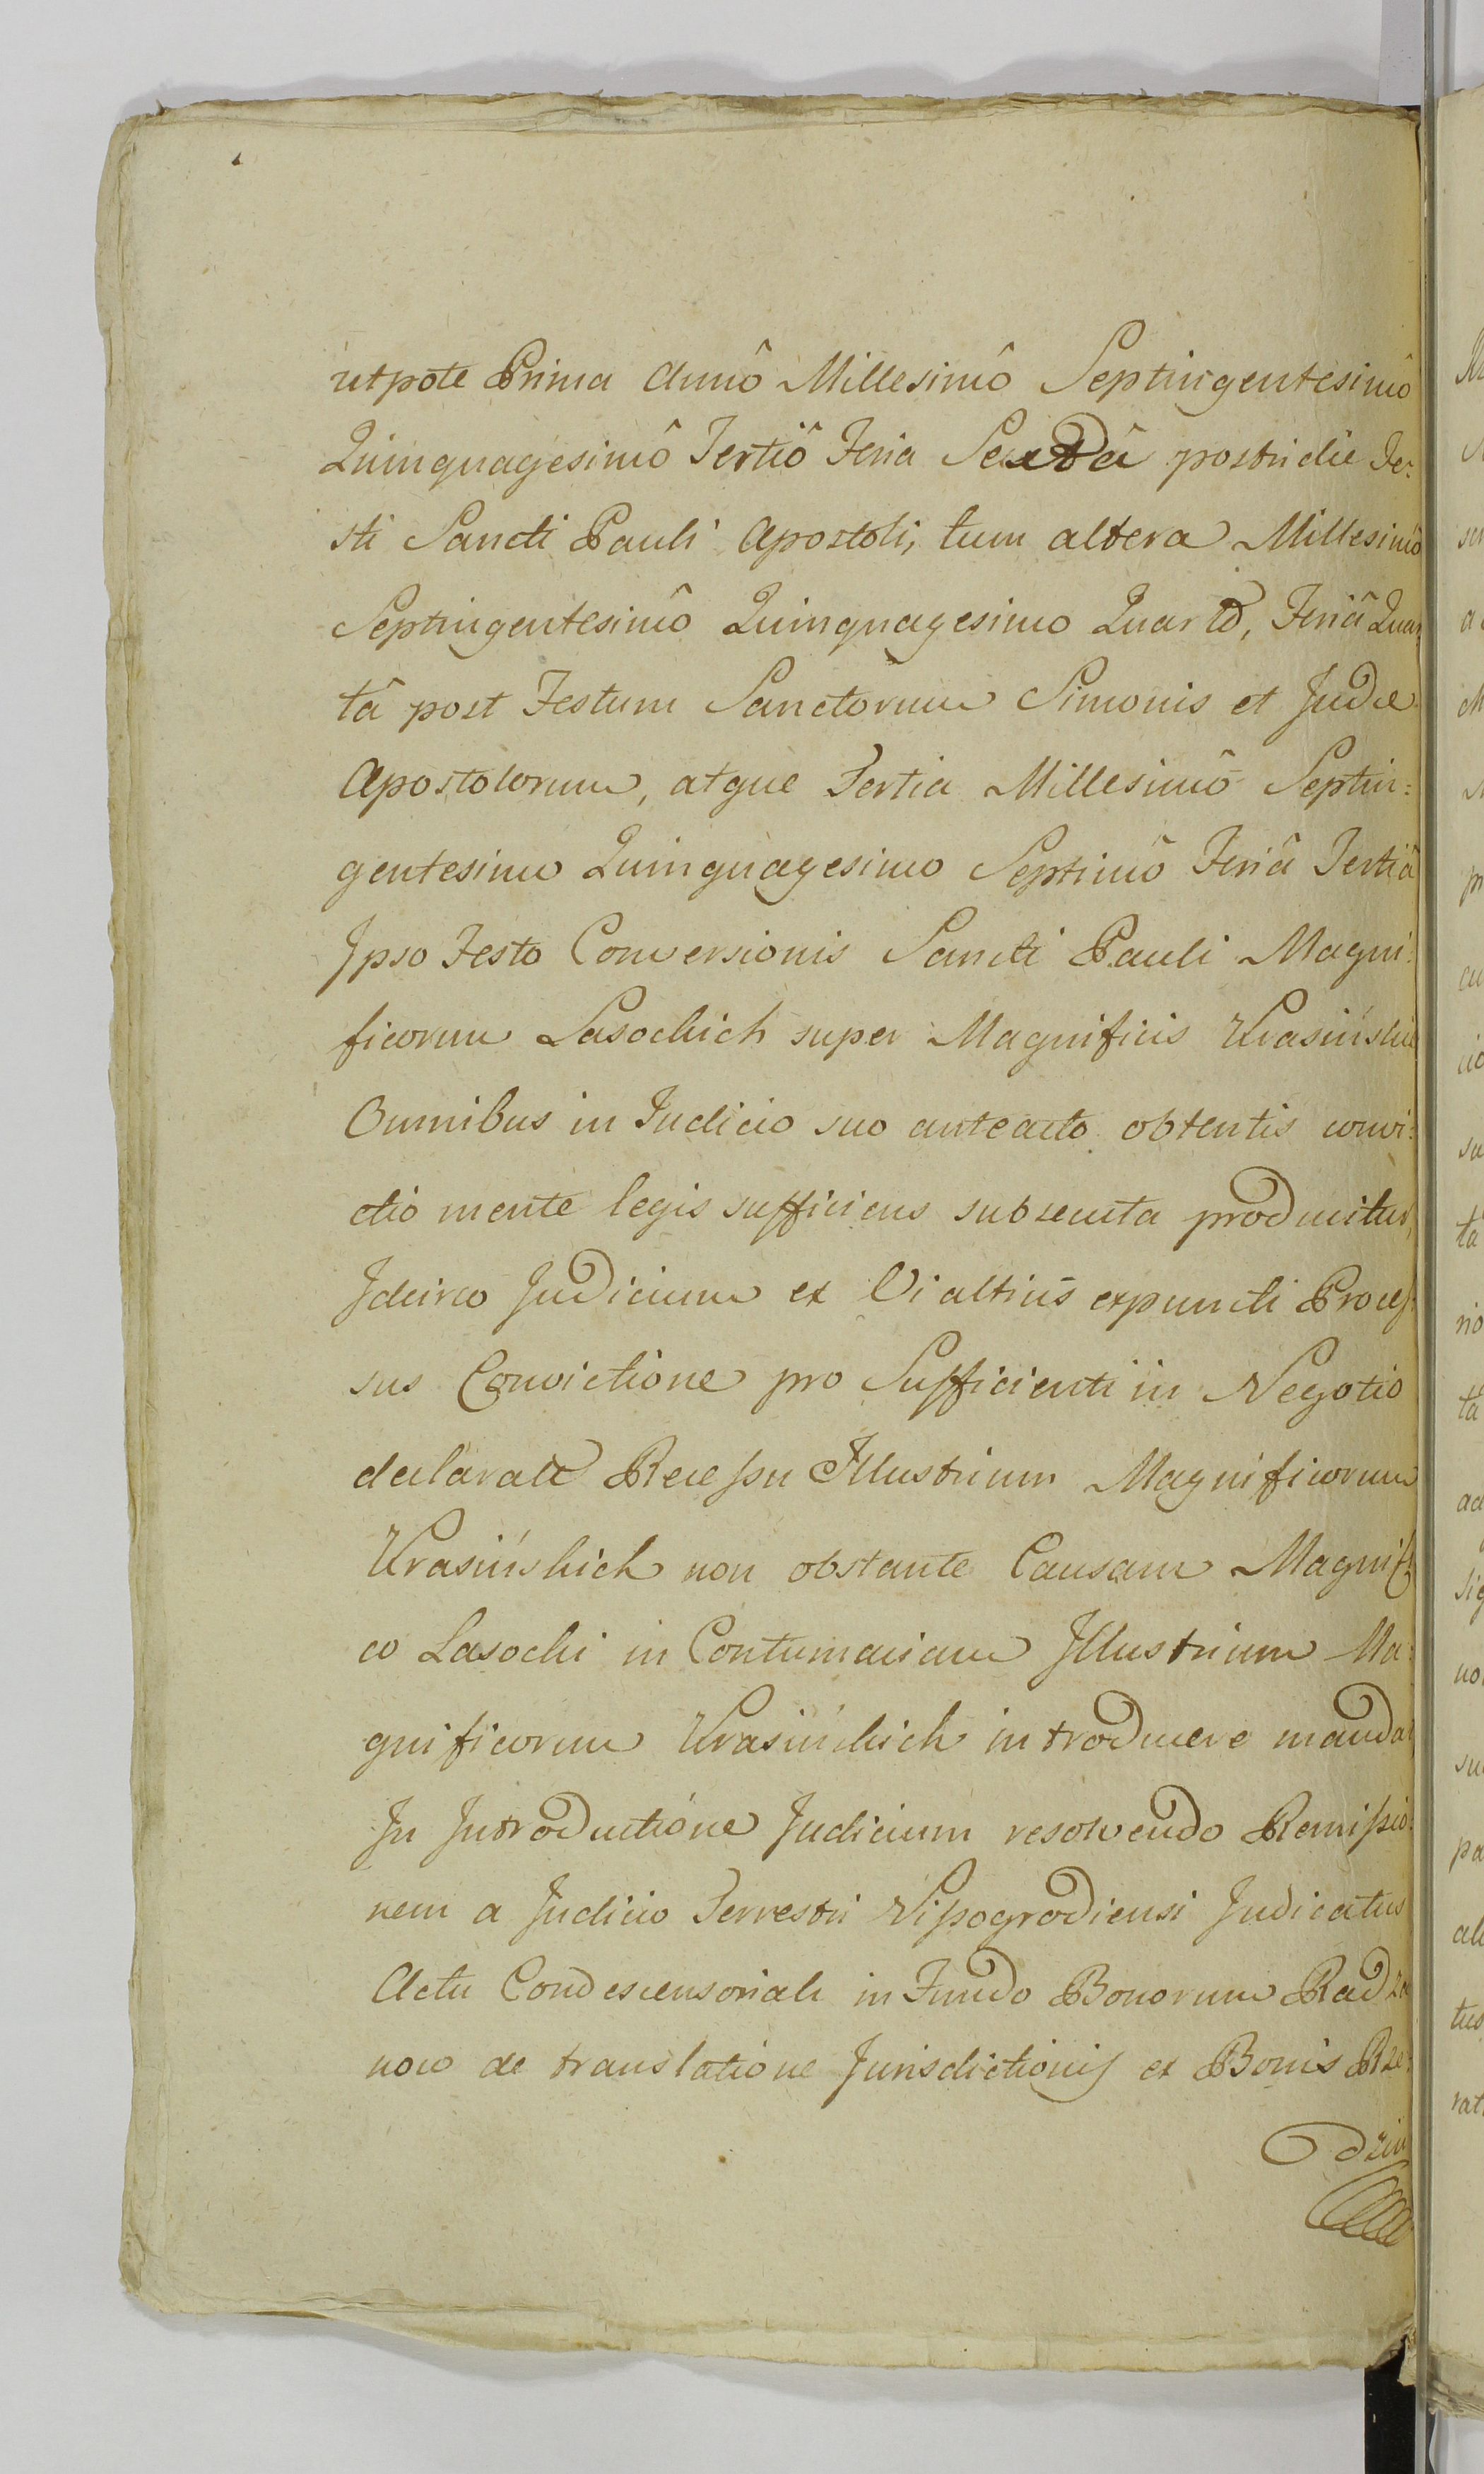 utpote Prima Annô Millesimô Septingentesimô
Quinquagesimô Tertiô Feria Sextâ postridie Fe:
sti Sancti Pauli Apostoli, tum altera Millesimô
Septingentesimô Quinquagesimo Quarto, Feriâ Quar
tâ post Festum Sanctorum Simonis et Judæ
Apostolorum, atque Tertia Millesimô Septin:
gentesimo Quinquagesimo Septimô Feriâ Tertiâ
Ipso Festo Conversionis Sancti Pauli Magni:
ficorum Lasockich super Magnificis Krasińskie
Omnibus in Judicio suo anteacto obtentis convi:
ctio mente legis sufficiens subsecuta producitur,
Idcirco Judicium ex Vi altius expuncti Proces:
sus Convictione pro Sufficienti in Negotio
declarata Recessu Illustrium Magnificorum
Krasińskich non obstante Causam Magnifi
co Lasocki in Contumaciam Illustrium Ma:
gnificorum Krasińskich introducere mandat
In Introductione Judicium resolvendo Remissio:
nem a Judicio Terrestri Vissogrodiensi Judicatus
Actu Condescensoriali in Fundo Bonorum Radza
now de translatione Jurisdictionis ex Bonis Rze:
dzin